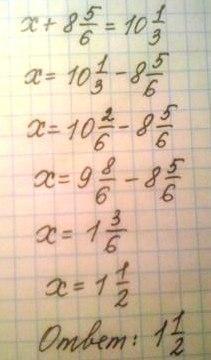 x + 8 5/6 = 10 1/3
x = 10 1/3 - 8 5/6
x = 10 2/6 - 8 5/6
x = 9 8/6 - 8 5/6
x = 1 3/6
x = 1 1/2
Ответ: 1 1/2